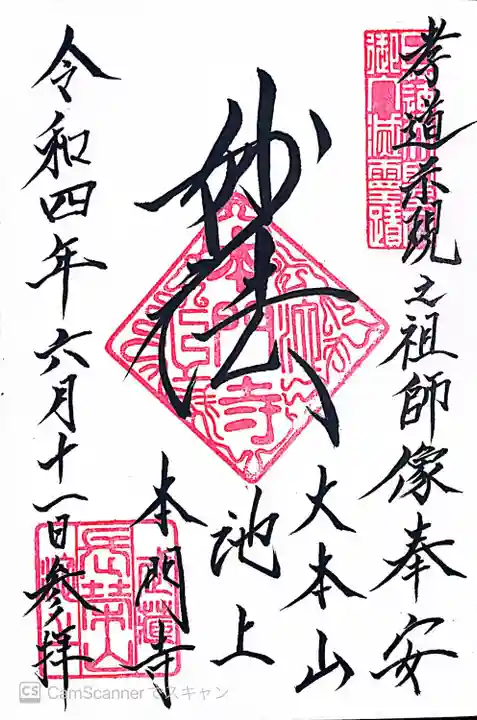 孝道示現之祖師像奉安
妙法
大本山
池上
本門寺
令和四年六月十一日参拝
御入滅霊蹟
本門寺
長栄山
CS CamScanner でスキャン